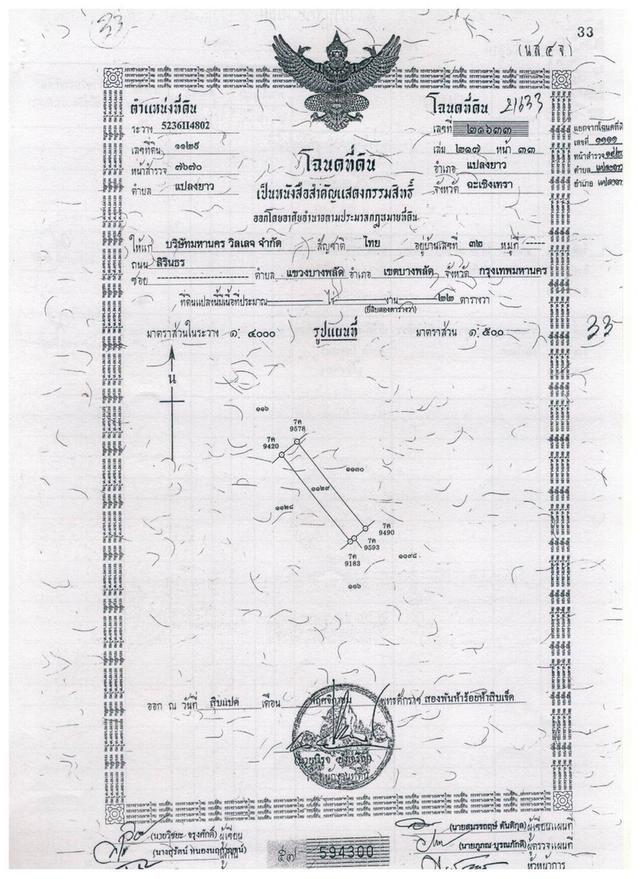 33
(น.ส. ๔ จ)
ตำแหน่งที่ดิน
ระวาง 5236II4802
เลขที่ดิน ๑๑๒๙
หน้าสำรวจ ๗๖๗๐
ตำบล แปลงยาว
โฉนดที่ดิน
เป็นหนังสือสำคัญแสดงกรรมสิทธิ์
ออกโดยอาศัยอำนาจตามประมวลกฎหมายที่ดิน
โฉนดที่ดิน 21633
เลขที่ ๒๑๖๓๓
เล่ม ๒๑๗ หน้า ๓๓
อำเภอ แปลงยาว
จังหวัด ฉะเชิงเทรา
แยกจากโฉนดที่ดิ
เลขที่
หน้าสำรวจ
ตำบล แปลงยาว
อำเภอ แปลงยาว
ให้แก่ บริษัทมหานคร วิลเลจ จำกัด สัญชาติ ไทย อยู่บ้านเลขที่ ๓๒ หมู่ที่ ----
ถนน สิรินธร
ซอย ตำบล แขวงบางพลัด อำเภอ เขตบางพลัด จังหวัด กรุงเทพมหานคร
ที่ดินแปลงนี้มีเนื้อที่ประมาณ ไร่ งาน ๒๒ ตารางวา
(ยี่สิบสองตารางวา)
มาตราส่วนในระวาง ๑: ๔๐๐๐ รูปแผนที่ มาตราส่วน ๑: ๕๐๐
33
น
๑๑๖
7ค
9578
7ค
9420
๑๑๓๐
๑๑๒๙
๑๑๒๘
7ค
9490
7ค
9593
7ค
9183
๑๐๙๔
๑๑๖
ออก ณ วันที่ สิบแปด เดือน พฤศจิกายน พุทธศักราช สองพันห้าร้อยห้าสิบเจ็ด
(นายวิชยะ จรุงศักดิ์) ผู้เขียน
(นายสมรรถฤษ์ ตันติกุล) ผู้เขียนแผนที่
(นายภูภณ บูรณภักดี) ผู้ตรวจแผนที่
๕๗ 594300
หัวหน้าการ